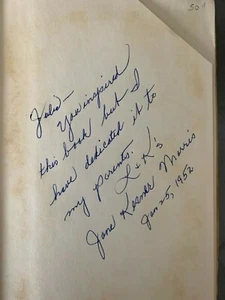 John—
You inspired
this book but I
have dedicated it to
my parents.
L + K's
Jane Kesner Morris
Jan 25, 1952